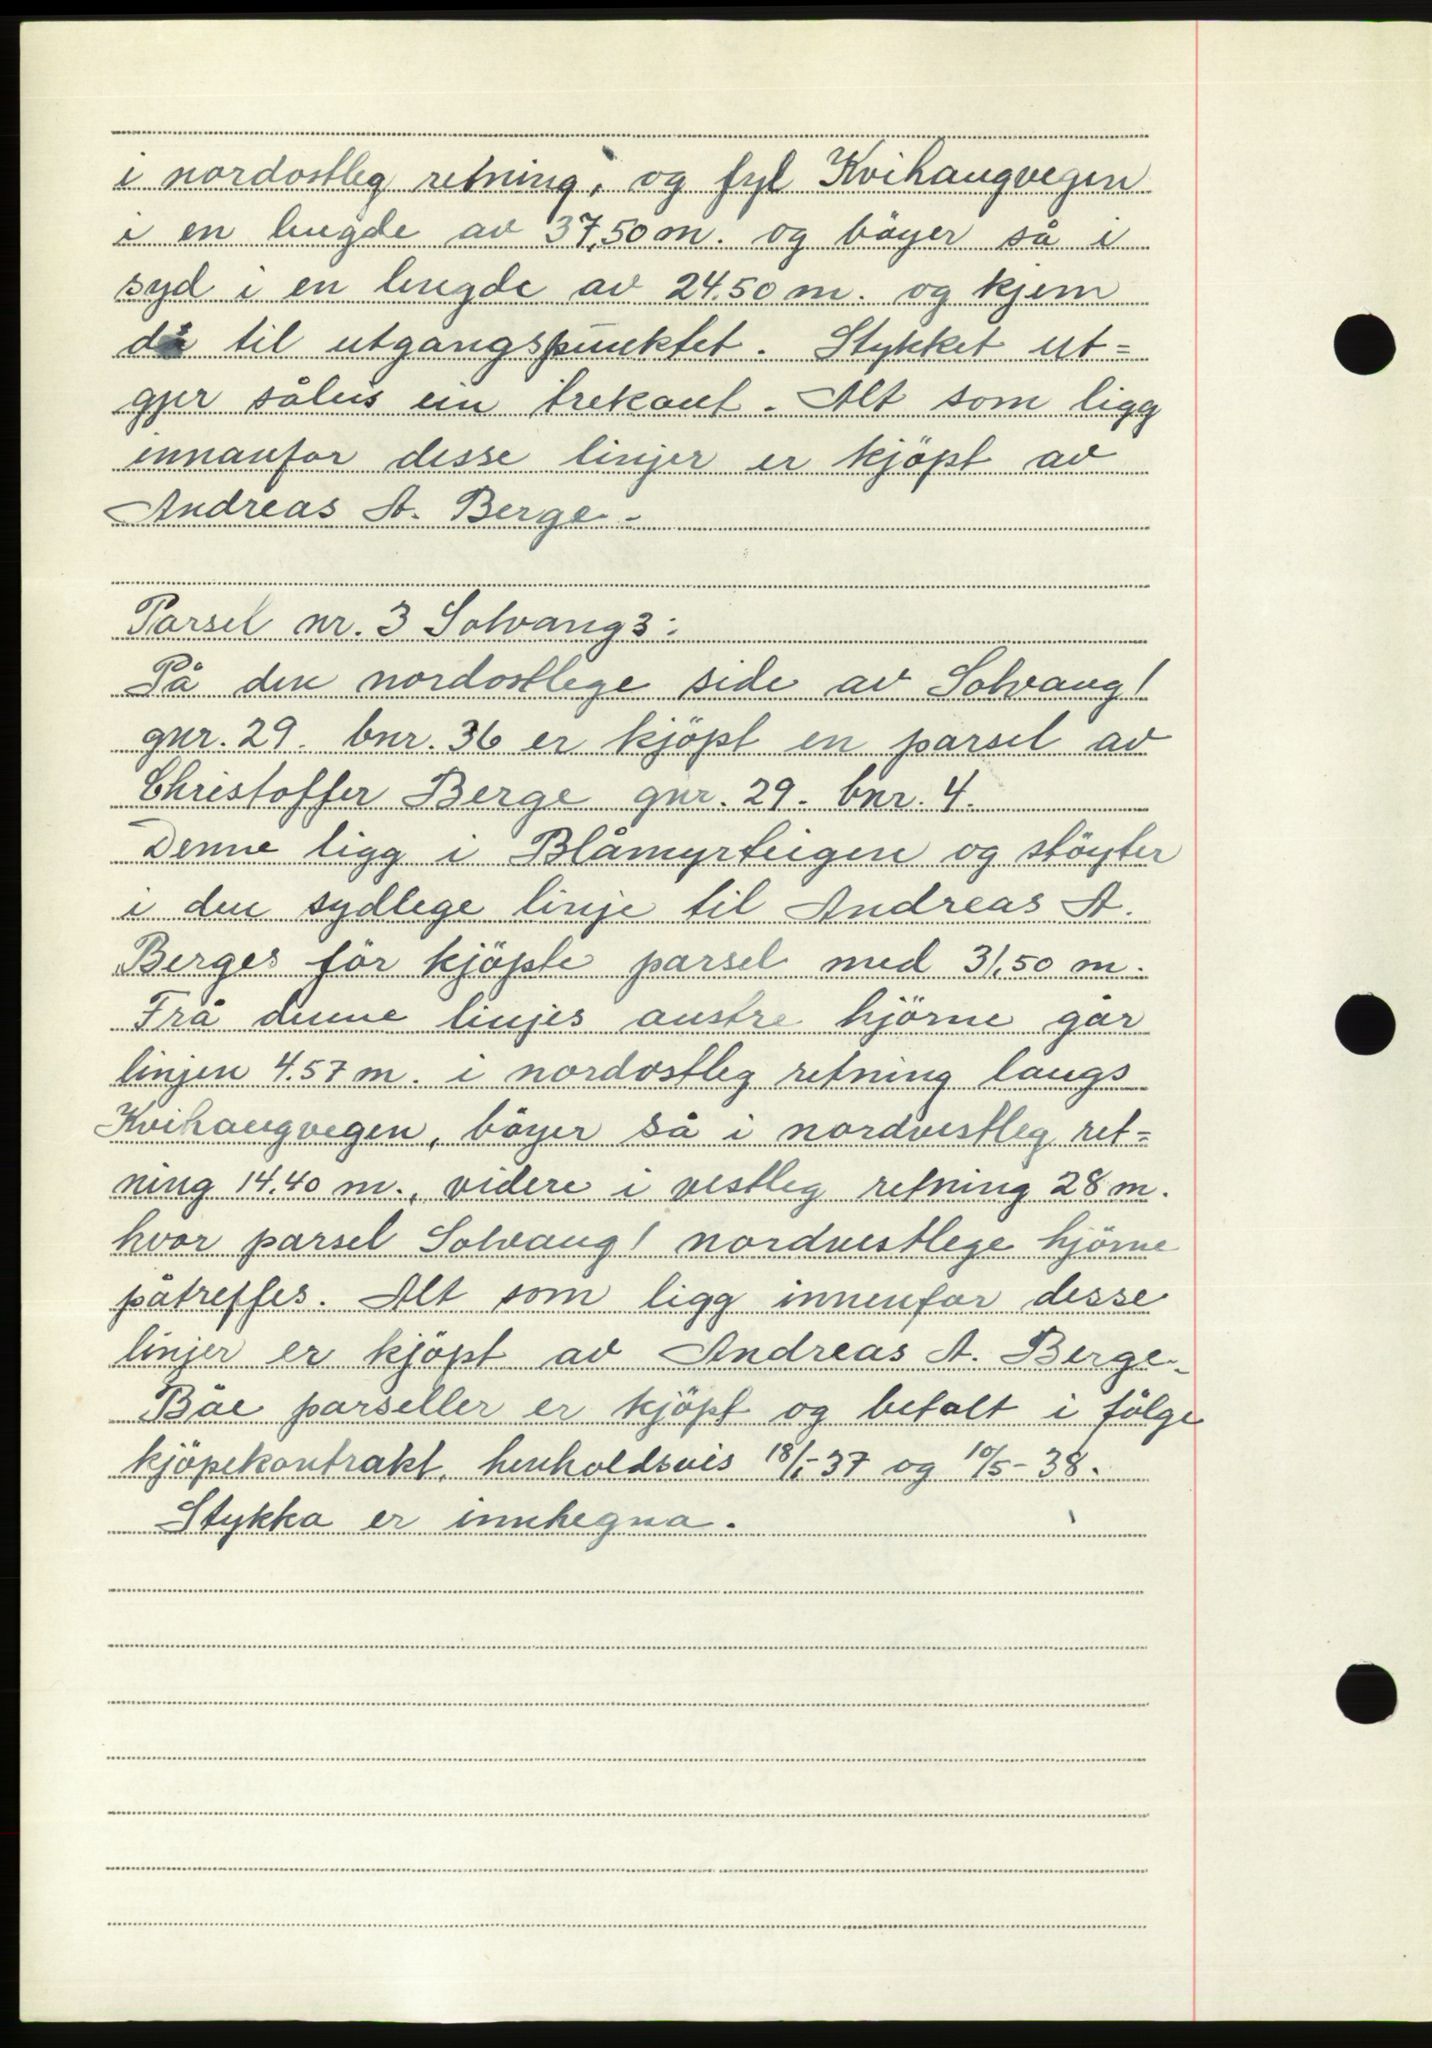 i nordostleg retning, og fyl Kvihaugvegen
i en lengde av 37,50 m. og böyer så i
syd i en lengde av 24.50 m. og kjem
då til utgangspunktet. Stykket ut=
gjer såleis ein trekant. Alt som ligg
innanfor desse linjer er kjöpt av
Andreas A. Berge.-
Parsel nr. 3 Solvang 3:
På den nordostlege side av Solvang 1
gnr. 29. bnr. 36 er kjöpt en parsel av
Christoffer Berge gnr. 29. bnr. 4.
Denne ligg i Blåmyrteigen og stöyter
i den sydlege linje til Andreas A.
Berges för kjöpte parsel med 31,50 m.
Frå denne linjes austre hjörne går
linjen 4.57 m. i nordostleg retning langs
Kvihaugvegen, böyer så i nordvestleg ret=
ning 14.40 m., videre i vestleg retning 28 m.
hvor parsel Solvang 1 nordvestlege hjörne
påtreffes. Alt som ligg innenfor desse
linjer er kjöpt av Andreas A. Berge.-
Båe parseller er kjöpt og betalt i fölge
kjöpekontrakt, henholdsvis 18/1-37 og 10/5-38.
Stykka er innhegna.